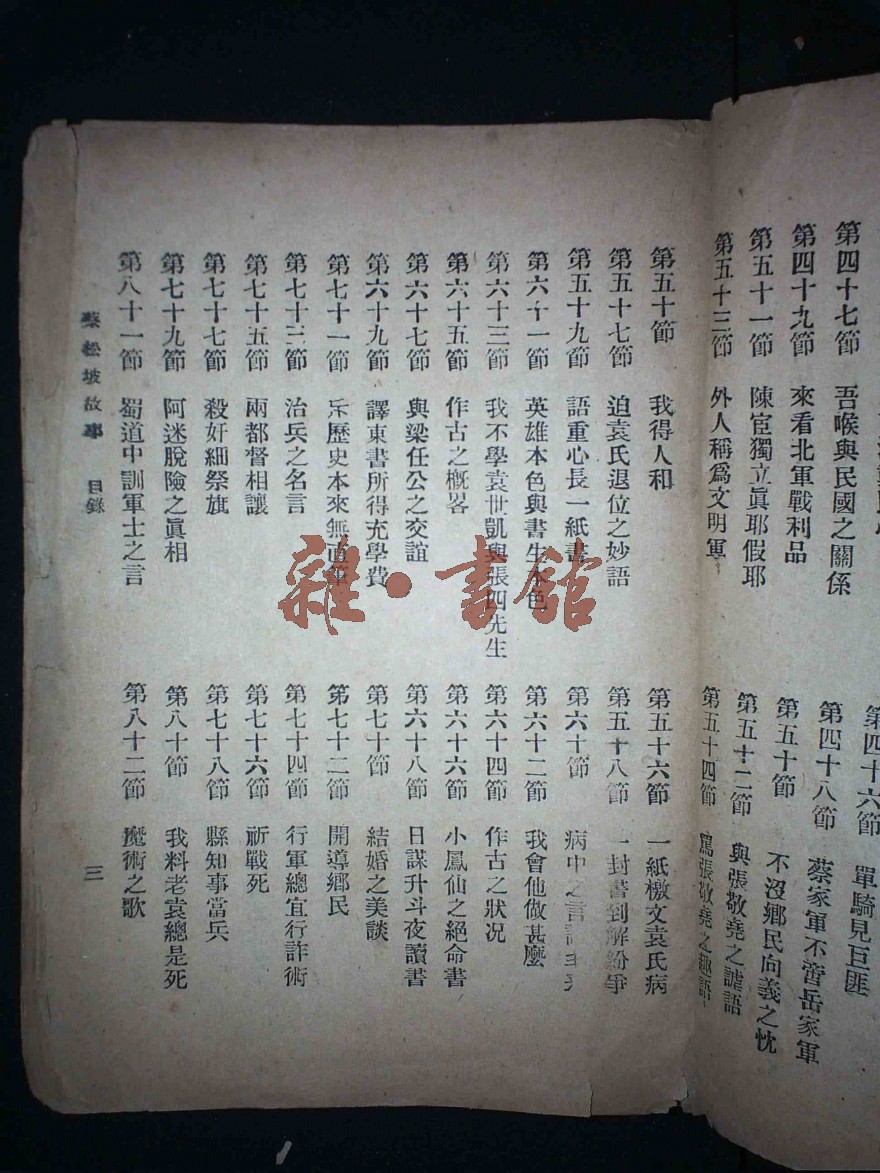 第四十六節　單騎見巨匪
第四十七節　吾喉與民國之關係　第四十八節　蔡家軍不啻岳家軍
第四十九節　來看北軍戰利品　第五十節　不沒鄉民向義之忱
第五十一節　陳宧獨立眞耶假耶　第五十二節　與張敬堯之謔語
第五十三節　外人稱爲文明軍　第五十四節　罵張敬堯之趣語
第五十節　我得人和　第五十六節　一紙檄文袁氏病
第五十七節　迫袁氏退位之妙語　第五十八節　一封書到解紛爭
第五十九節　語重心長一紙書　第六十節　病中之言
第六十一節　英雄本色與書生本色　第六十二節　我會他做甚麼
第六十三節　我不學袁世凱與張四先生　第六十四節　作古之狀況
第六十五節　作古之概畧　第六十六節　小鳳仙之絕命書
第六十七節　與梁任公之交誼　第六十八節　日謀升斗夜讀書
第六十九節　譯東書所得充學費　第七十節　結婚之美談
第七十一節　斥歷史本來無直筆　第七十二節　開導鄉民
第七十三節　治兵之名言　第七十四節　行軍總宜行詐術
第七十五節　兩都督相讓　第七十六節　祈戰死
第七十七節　殺奸細祭旗　第七十八節　縣知事當兵
第七十九節　阿迷脫險之眞相　第八十節　我料老袁總是死
第八十一節　蜀道中訓軍士之言　第八十二節　魔術之歌
蔡松坡故事　目錄　三
雜·書館